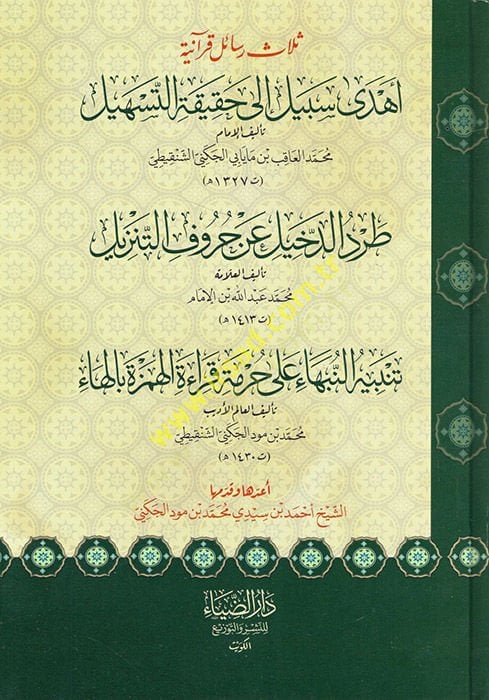 ثلاث رسائل قرآنية
أهدى سبيل إلى حقيقة التسهيل
تأليف الإمام
محمد العاقب بن مايابي الجكني الشنقيطي
(ت ١٣٢٧ هـ)
طرد الدخيل عن حروف التنزيل
تأليف العلامة
محمد عبد الله بن الإمام
(ت ١٤١٣ هـ)
تنبيه النبهاء على حرمة قراءة الهمزة بالهاء
تأليف العالم الأديب
محمد بن مود الجكني الشنقيطي
(ت ١٤٣٠ هـ)
أعدها وقدم لها
الشيخ أحمد بن سيدي محمد بن مود الجكني
دار الضياء
للنشر والتوزيع
الكويت